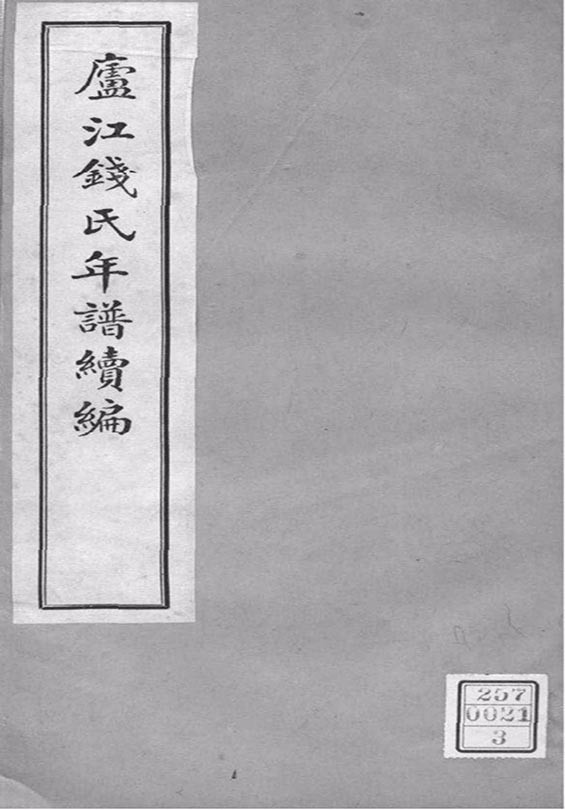 廬江錢氏年譜續編
257
0021
3